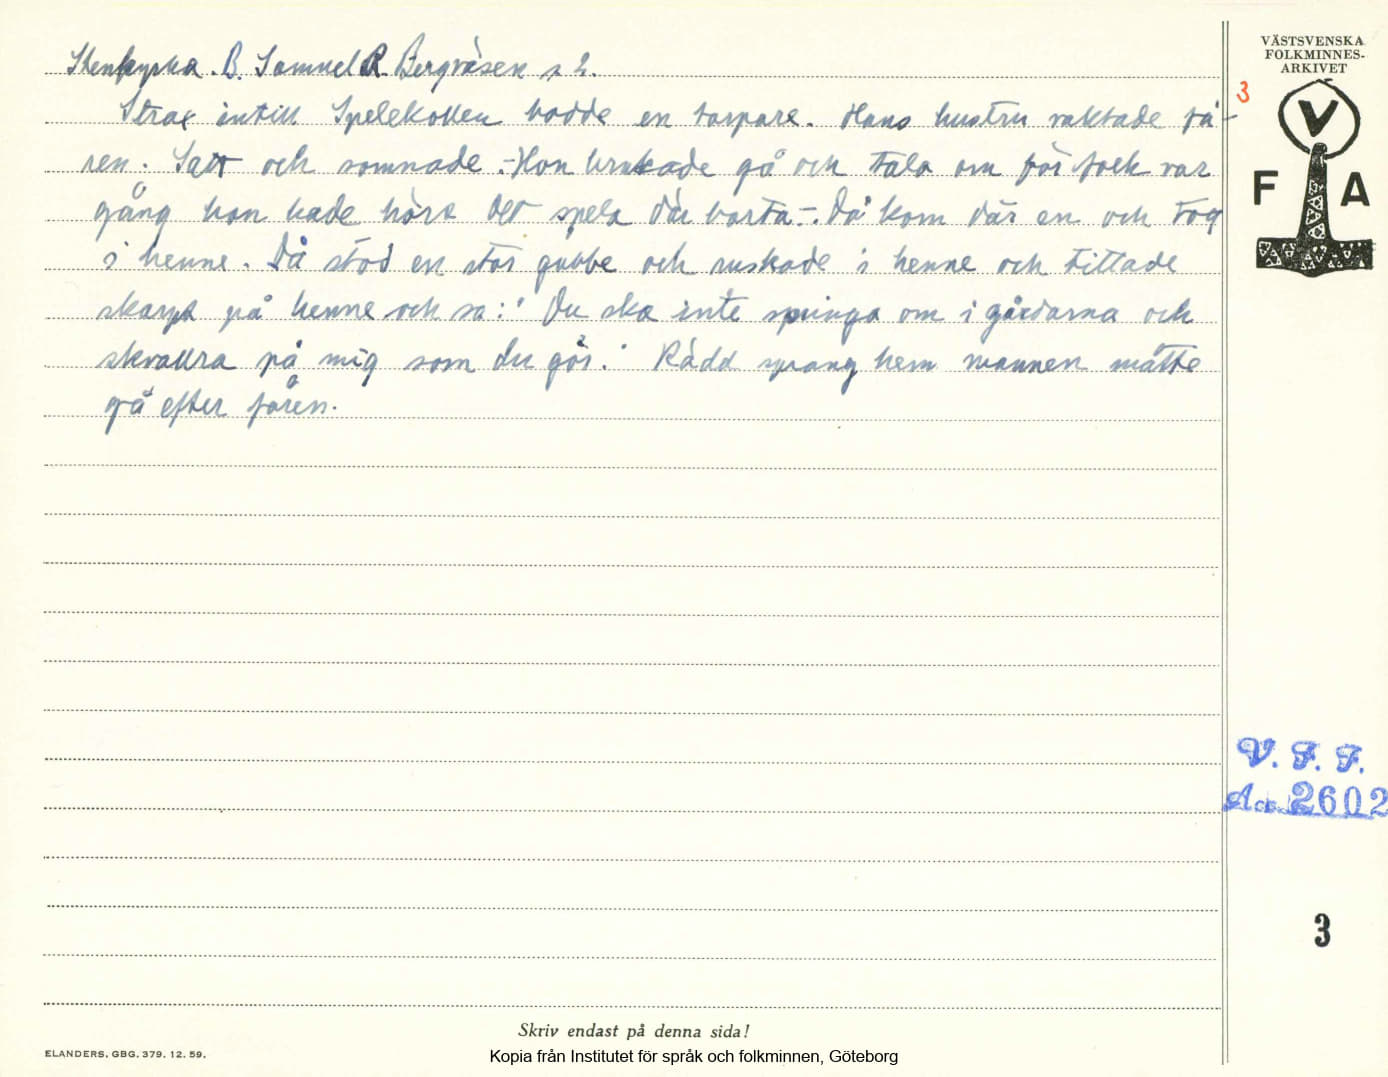 Stenkyrka. B. Samuel R. Bergvåsen s 2.
Strax intill Spelekollen bodde en torpare. Hans hustru vaktade få-
ren. Satt och somnade. - Hon brukade gå och tala om för folk var
gång hon hade hört det spela där borta -. Då kom där en och tog
i henne. Då stod en stor gubbe och ruskade i henne och tittade
skarpt på henne och sa: "Du ska inte springa om i gårdarna och
skvallra på mig som du gör." Rädd sprang hem mannen måtte
gå efter fåren.
VÄSTSVENSKA
FOLKMINNES-
ARKIVET
3
V
F A
V. F. F.
Acc. 2602
3
Skriv endast på denna sida!
ELANDERS. GBG. 379. 12. 59.
Kopia från Institutet för språk och folkminnen, Göteborg